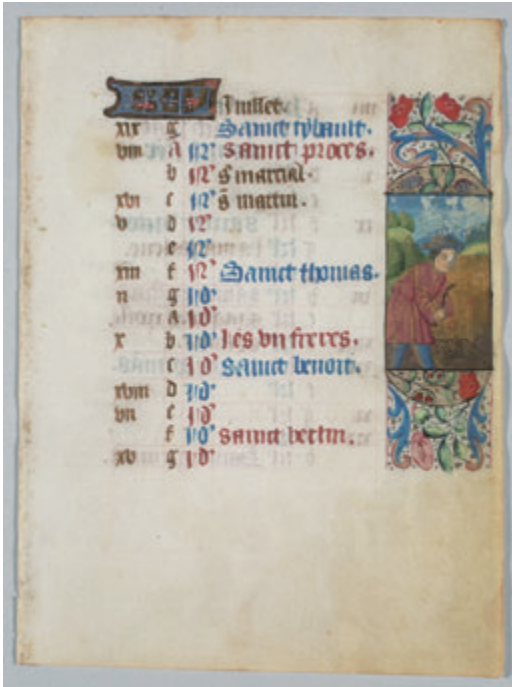 KL Juillet.
xix g Sainct tybault.
viii A N Sainct proces.
b N S marcial.
xvi c N S martin.
v d N
e N
xiii f N Sainct thomas.
ii g Id
A Id
x b Id Les vii freres.
c Id Sainct benoit.
xviii d Id
vii e Id
f Id Sainct bertin.
xv g Id